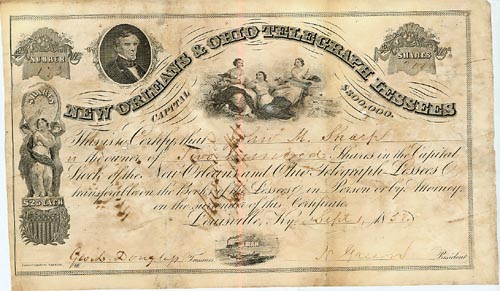 NUMBER
SHARES
NEW ORLEANS & OHIO TELEGRAPH LESSEES
CAPITAL $300,000.
SHARES
$25 EACH
This is to Certify that H. Sharp
is the owner of Two Hundred Shares in the Capital
Stock of the New Orleans and Ohio Telegraph Lessees
transferable on the Books of the Lessees in Person or by Attorney
on the surrender of this Certificate
Louisville, Ky. Sept. 1, 18
Geo. L. Douglass Treasurer
N. Green President